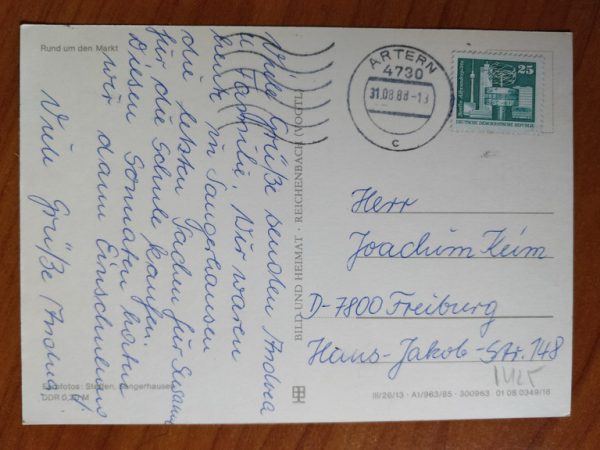 Rund um den Markt
Viele Grüße senden Andrea
u. Familie. Wir waren
heute in Sangerhausen
die letzten Sachen für Susann
für die Schule kaufen.
Diesen Sonnabd. hatten
wir dann Einschulung.
Viele Grüße Andrea
Farbfotos: Sangerhausen
DDR 0,20 M
BILD UND HEIMAT · REICHENBACH (VOGTL)
ARTERN
4730
31.08.88-13
c
25
DEUTSCHE DEMOKRATISCHE REPUBLIK
Herr
Joachim Keim
D-7800 Freiburg
Hans-Jakob-Str. 148
III/26/13 · A1/963/85 · 300963 01 08 0349/16